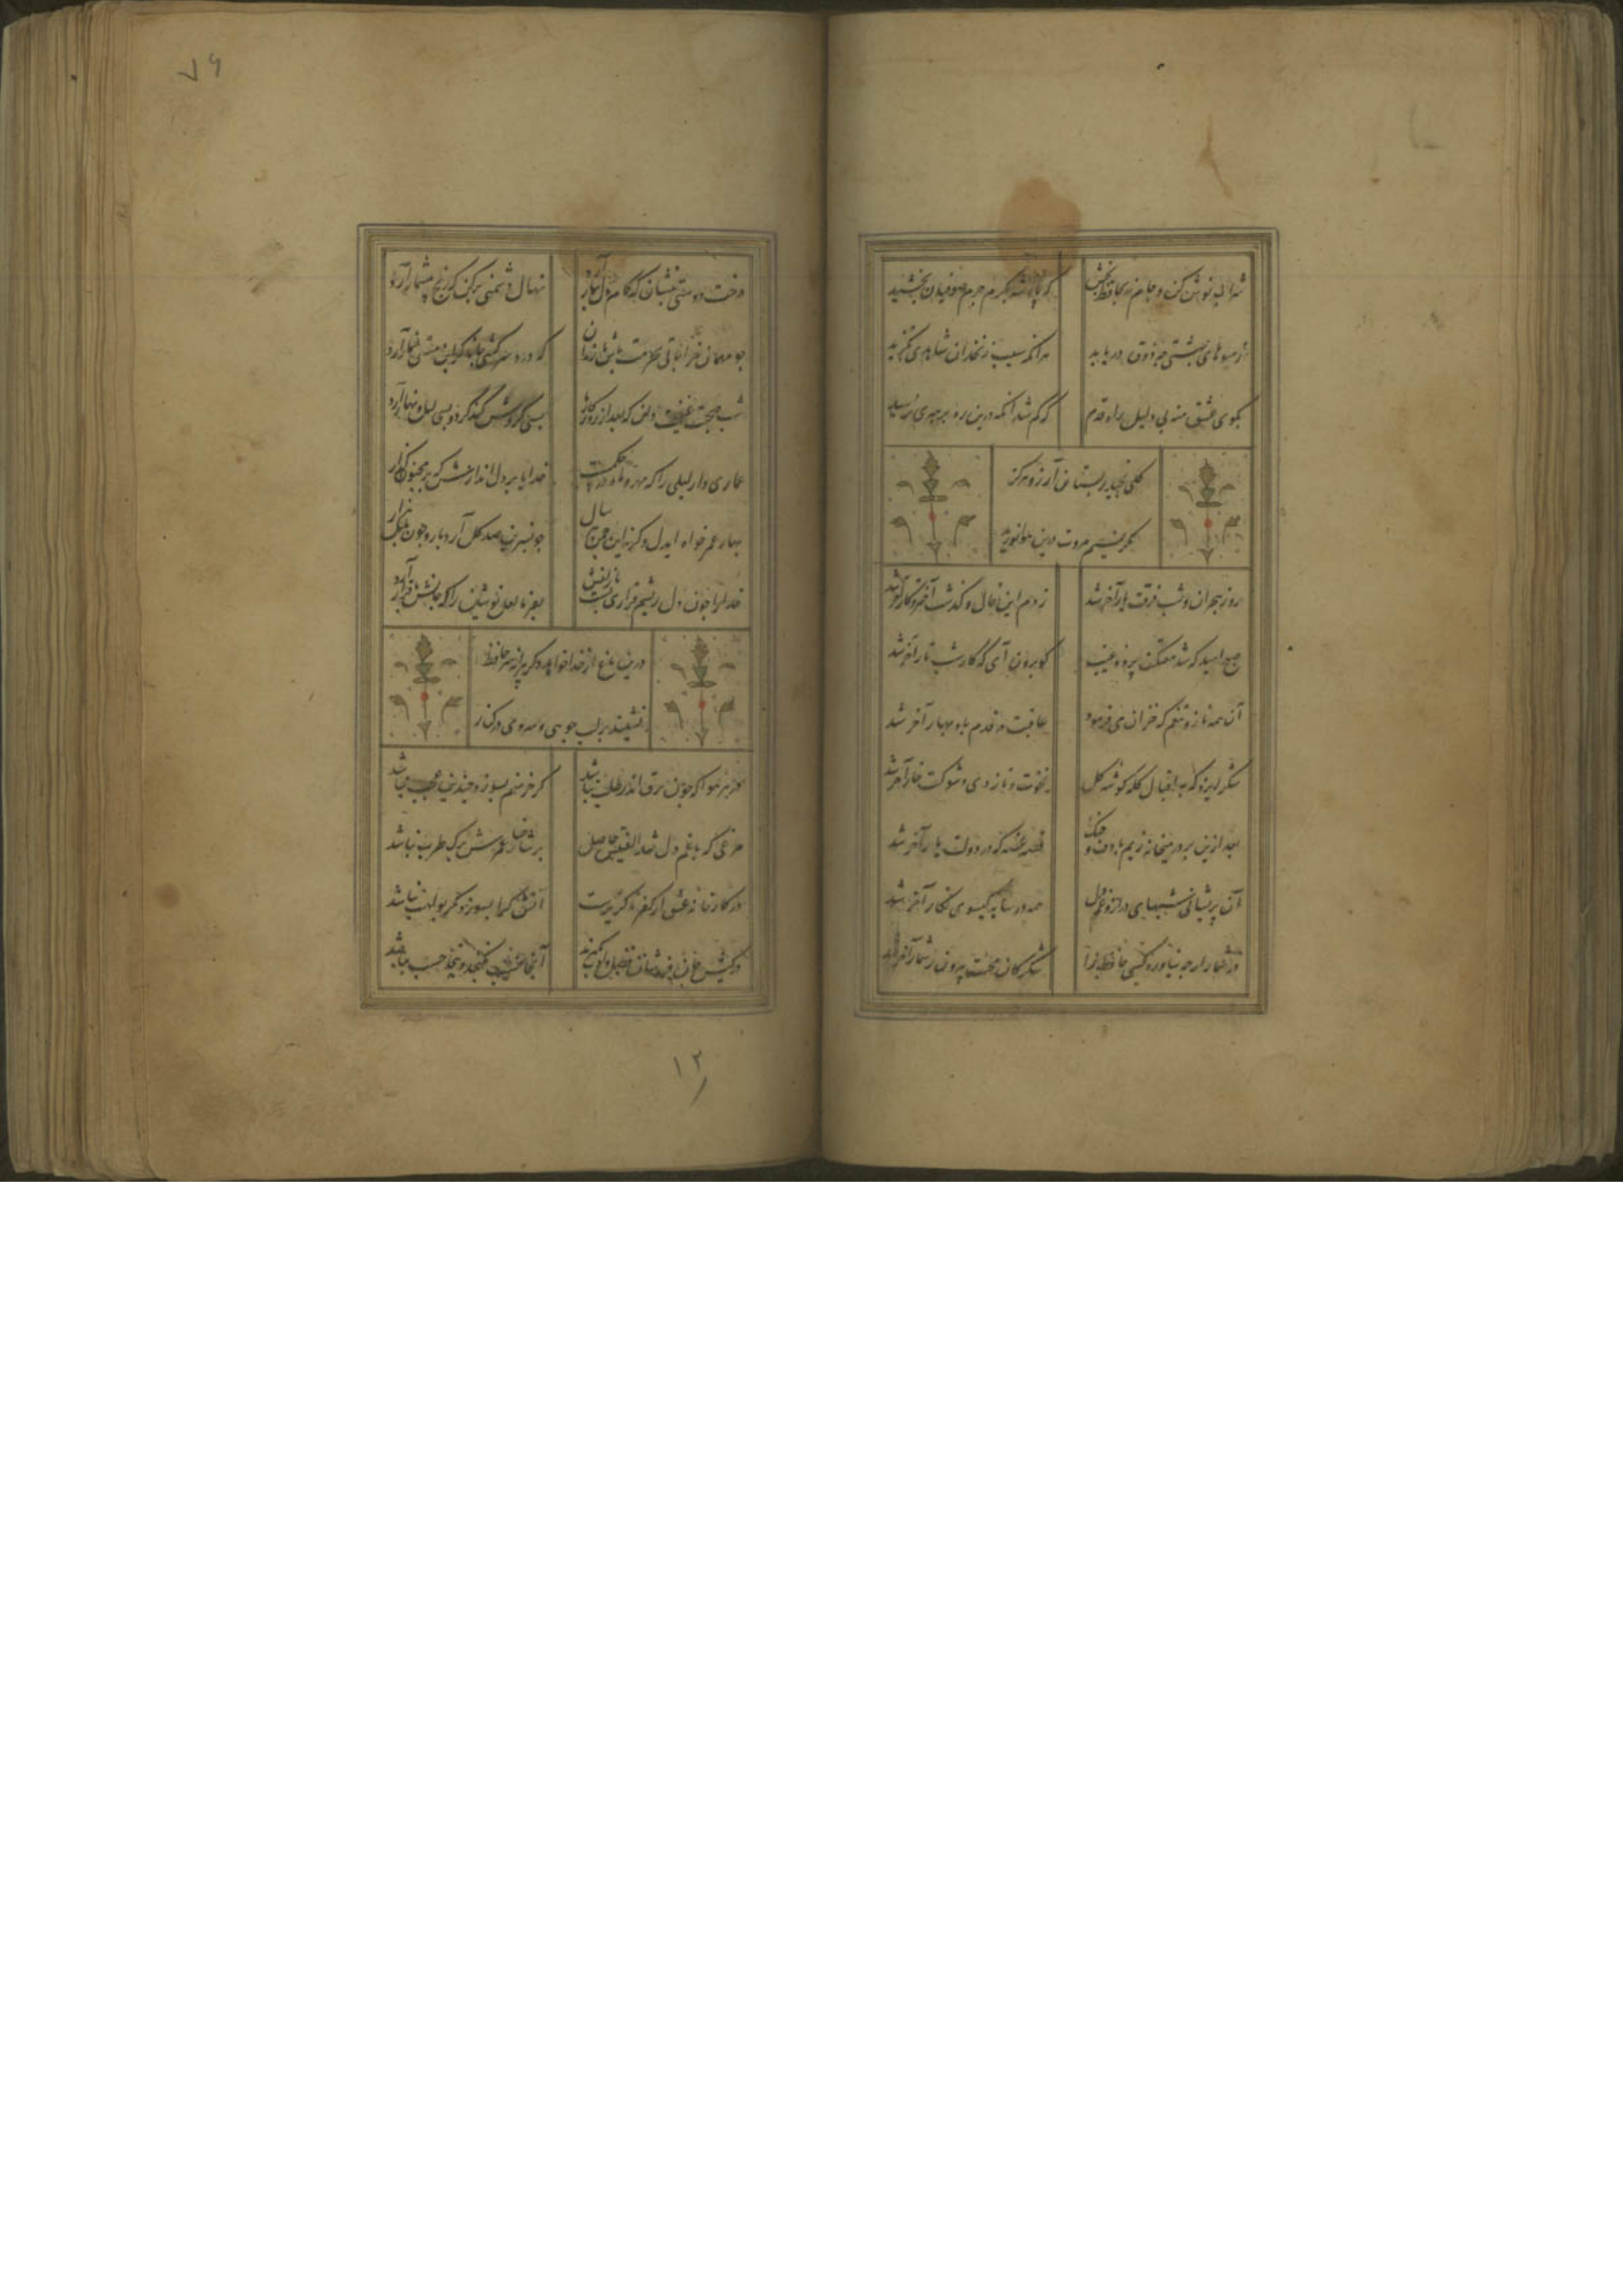 شراب نوش کن و جام زر بحافظ بخش
که پادشه بکرم جرم صوفیان بخشید
ز میوهای بهشتی چه ذوق دریابد
هر آنکه سیب زنخدان شاهدی نگزید
بکوی عشق منه بی دلیل راه قدم
که کم شد آنکه درین ره برهبری نرسید
کلی نچید ز بستان آرزو هرکز
مکر نسیم مروت درین هوا نوزید
روز هجران و شب فرقت یار آخر شد
زدم این فال و کذشت اختر و کار آخر شد
صبح امید که شد معتکف پرده غیب
کو برون آی که کار شب تار آخر شد
آن همه ناز و تنعم که خزان می فرمود
عاقبت در قدم باد بهار آخر شد
شکر ایزد که به اقبال کله کوشه کل
نخوت و باد دی و شوکت خار آخر شد
بعد ازین بر در میخانه زنیم با دف و چنک
قصه غصه که در دولت یار آخر شد
آن پریشانی شبهای دراز و غم دل
همه در سایه کیسوی نکار آخر شد
در شمار ار چه نیاورد کسی حافظ را
شکر کان محنت بیرون ز شمار آخر شد
۷۶
درخت دوستی بنشان که کام دل ببار آرد
نهال دشمنی برکن که رنج بیشمار آرد
چو مهمان خراباتی بعزت باش با رندان
که درد سر کشی جانا کرین مستی خمار آرد
شب صحبت غنیمت دان که بعد از روزکار
بسی کردش کند کردون بسی لیل و نهار آرد
عماری دار لیلی را که مهد ماه در حکمت
خدایا در دل اندازش که بر مجنون کذار
بهار عمر خواه ایدل وکرنه این چمن هر سال
چو نسرین صد کل آرد بار و چون بلبل هزار
خدا را چون دل ریشم قراری بست با زلفت
بفرما لعل نوشین را که جانش با قرار آرد
درین باغ از خدا خواهد دکر پیرانه سر حافظ
نشیند بر لب جویی و سروی در کنار
هر کو چون برق اندر طلب نباشد
کر خرمنم بسوزد چندین عجب نباشد
مرغی که با غم دل شد الفتیش حاصل
بر شاخسار عمرش برک طرب نباشد
در کارخانه عشق از کفر ناکزیرست
آتش کرا بسوزد کر بولهب نباشد
در کیش جان فروشان فضل و ادب
آنجا نسب نکنجد و اینجا حسب نباشد
۱۲